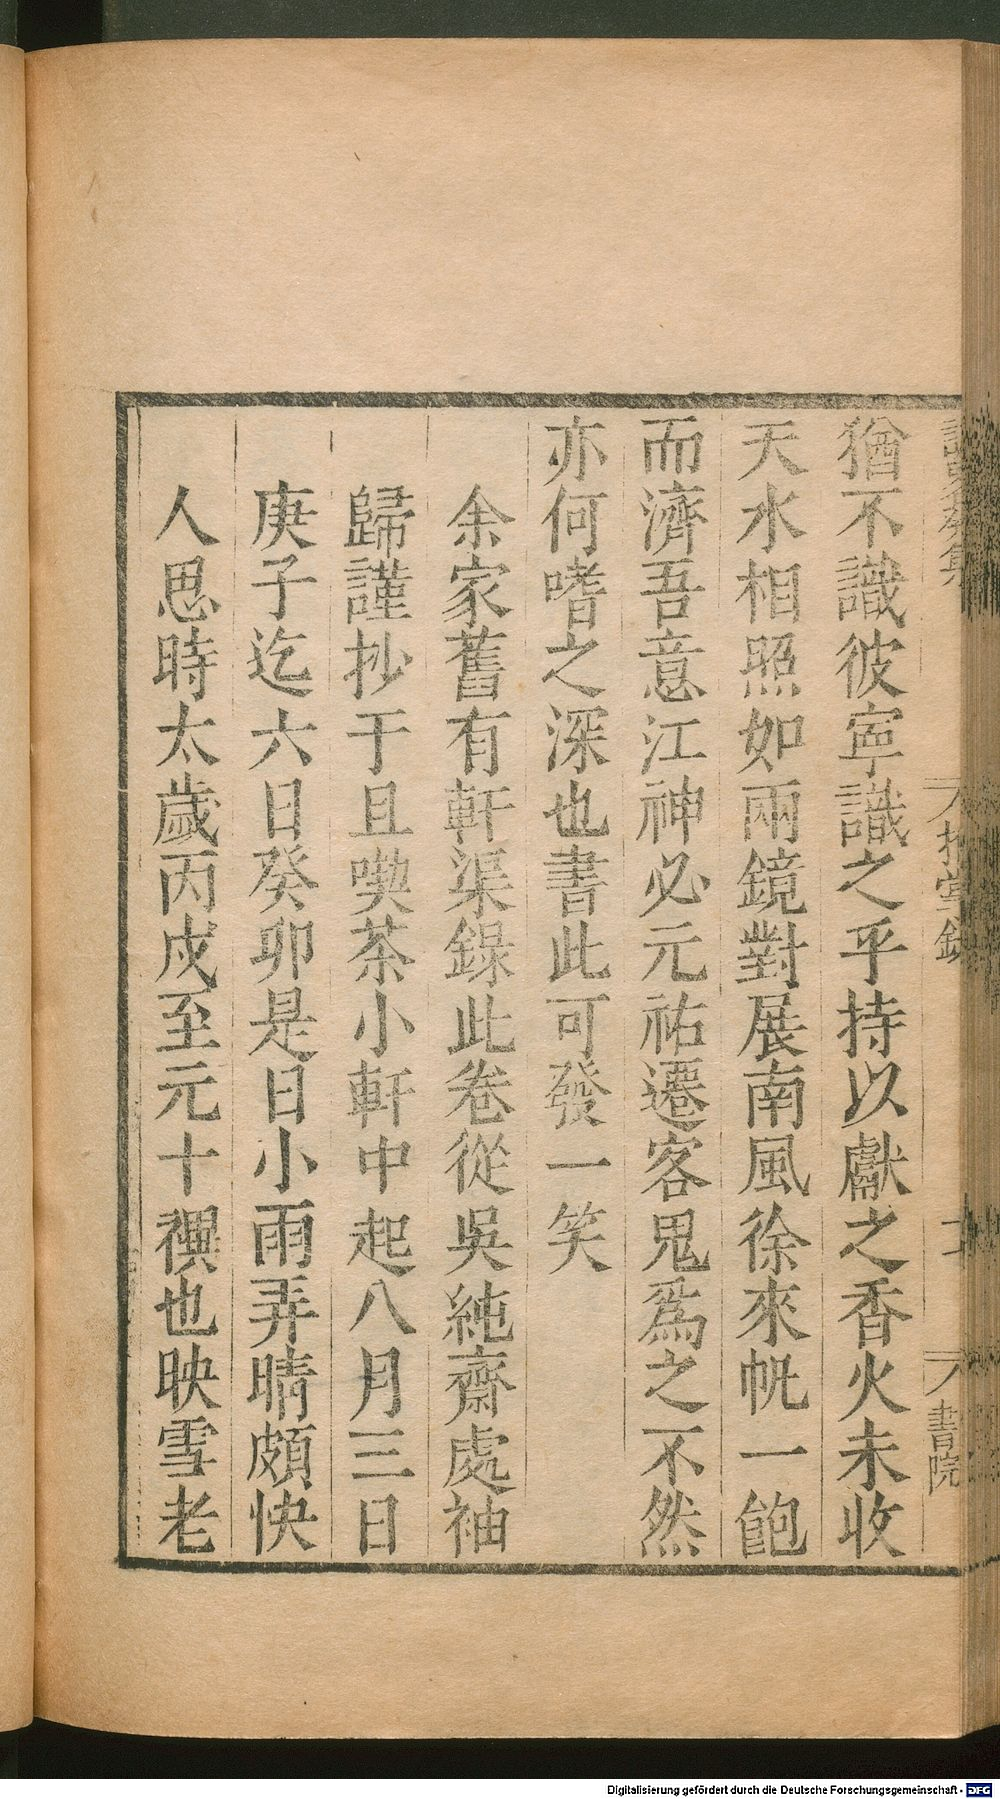 猶不識彼寧識之乎持以獻之香火未收
天水相照如兩鏡對展南風徐來帆一飽
而濟吾意江神必元祐遷客鬼爲之不然
亦何嗜之深也書此可發一笑
余家舊有軒渠錄此卷從吳純齋處袖
歸謹抄于且喫茶小軒中起八月三日
庚子迄六日癸卯是日小雨弄晴頗快
人思時太歲丙戌至元十禩也映雪老
書院
Digitalisierung gefördert durch die Deutsche Forschungsgemeinschaft - DFG